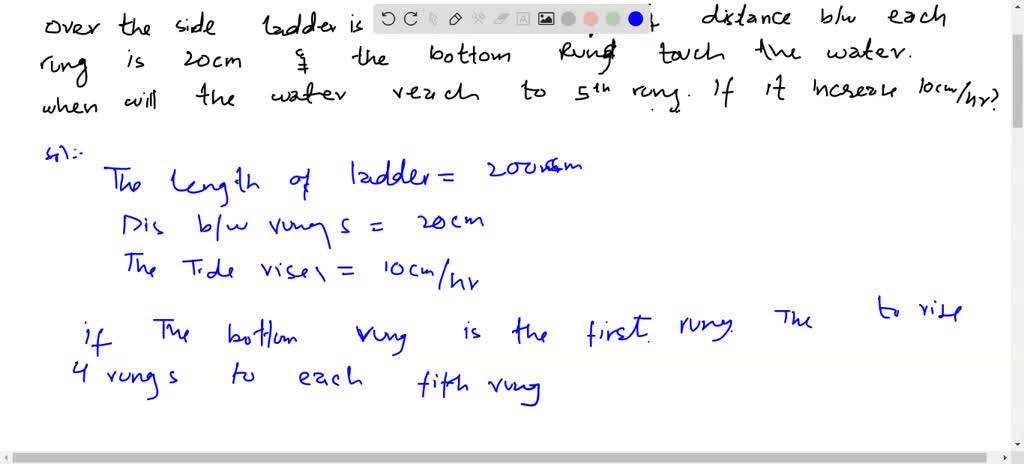 over the side ladder is distance b/w each
rung is 20cm & the bottom Rung touch the water.
when will the water reach to 5th rung. If it increase 10cm/hr?
sol:-
The Length of ladder = 200cm
Dis b/w rungs = 20cm
The Tide rises = 10cm/hr
if The bottom rung is the first rung. The to rise
4 rungs to each fifth rung